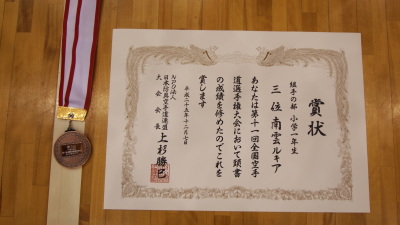 賞状
組手の部 小学一年生
三位 南雲ルキア
あなたは第十一回全国空手
道選手権大会において頭書
の成績を修めたのでこれを
賞します
平成二十五年十二月七日
NPO法人
日本防具空手道連盟
大会会長 上杉勝巳